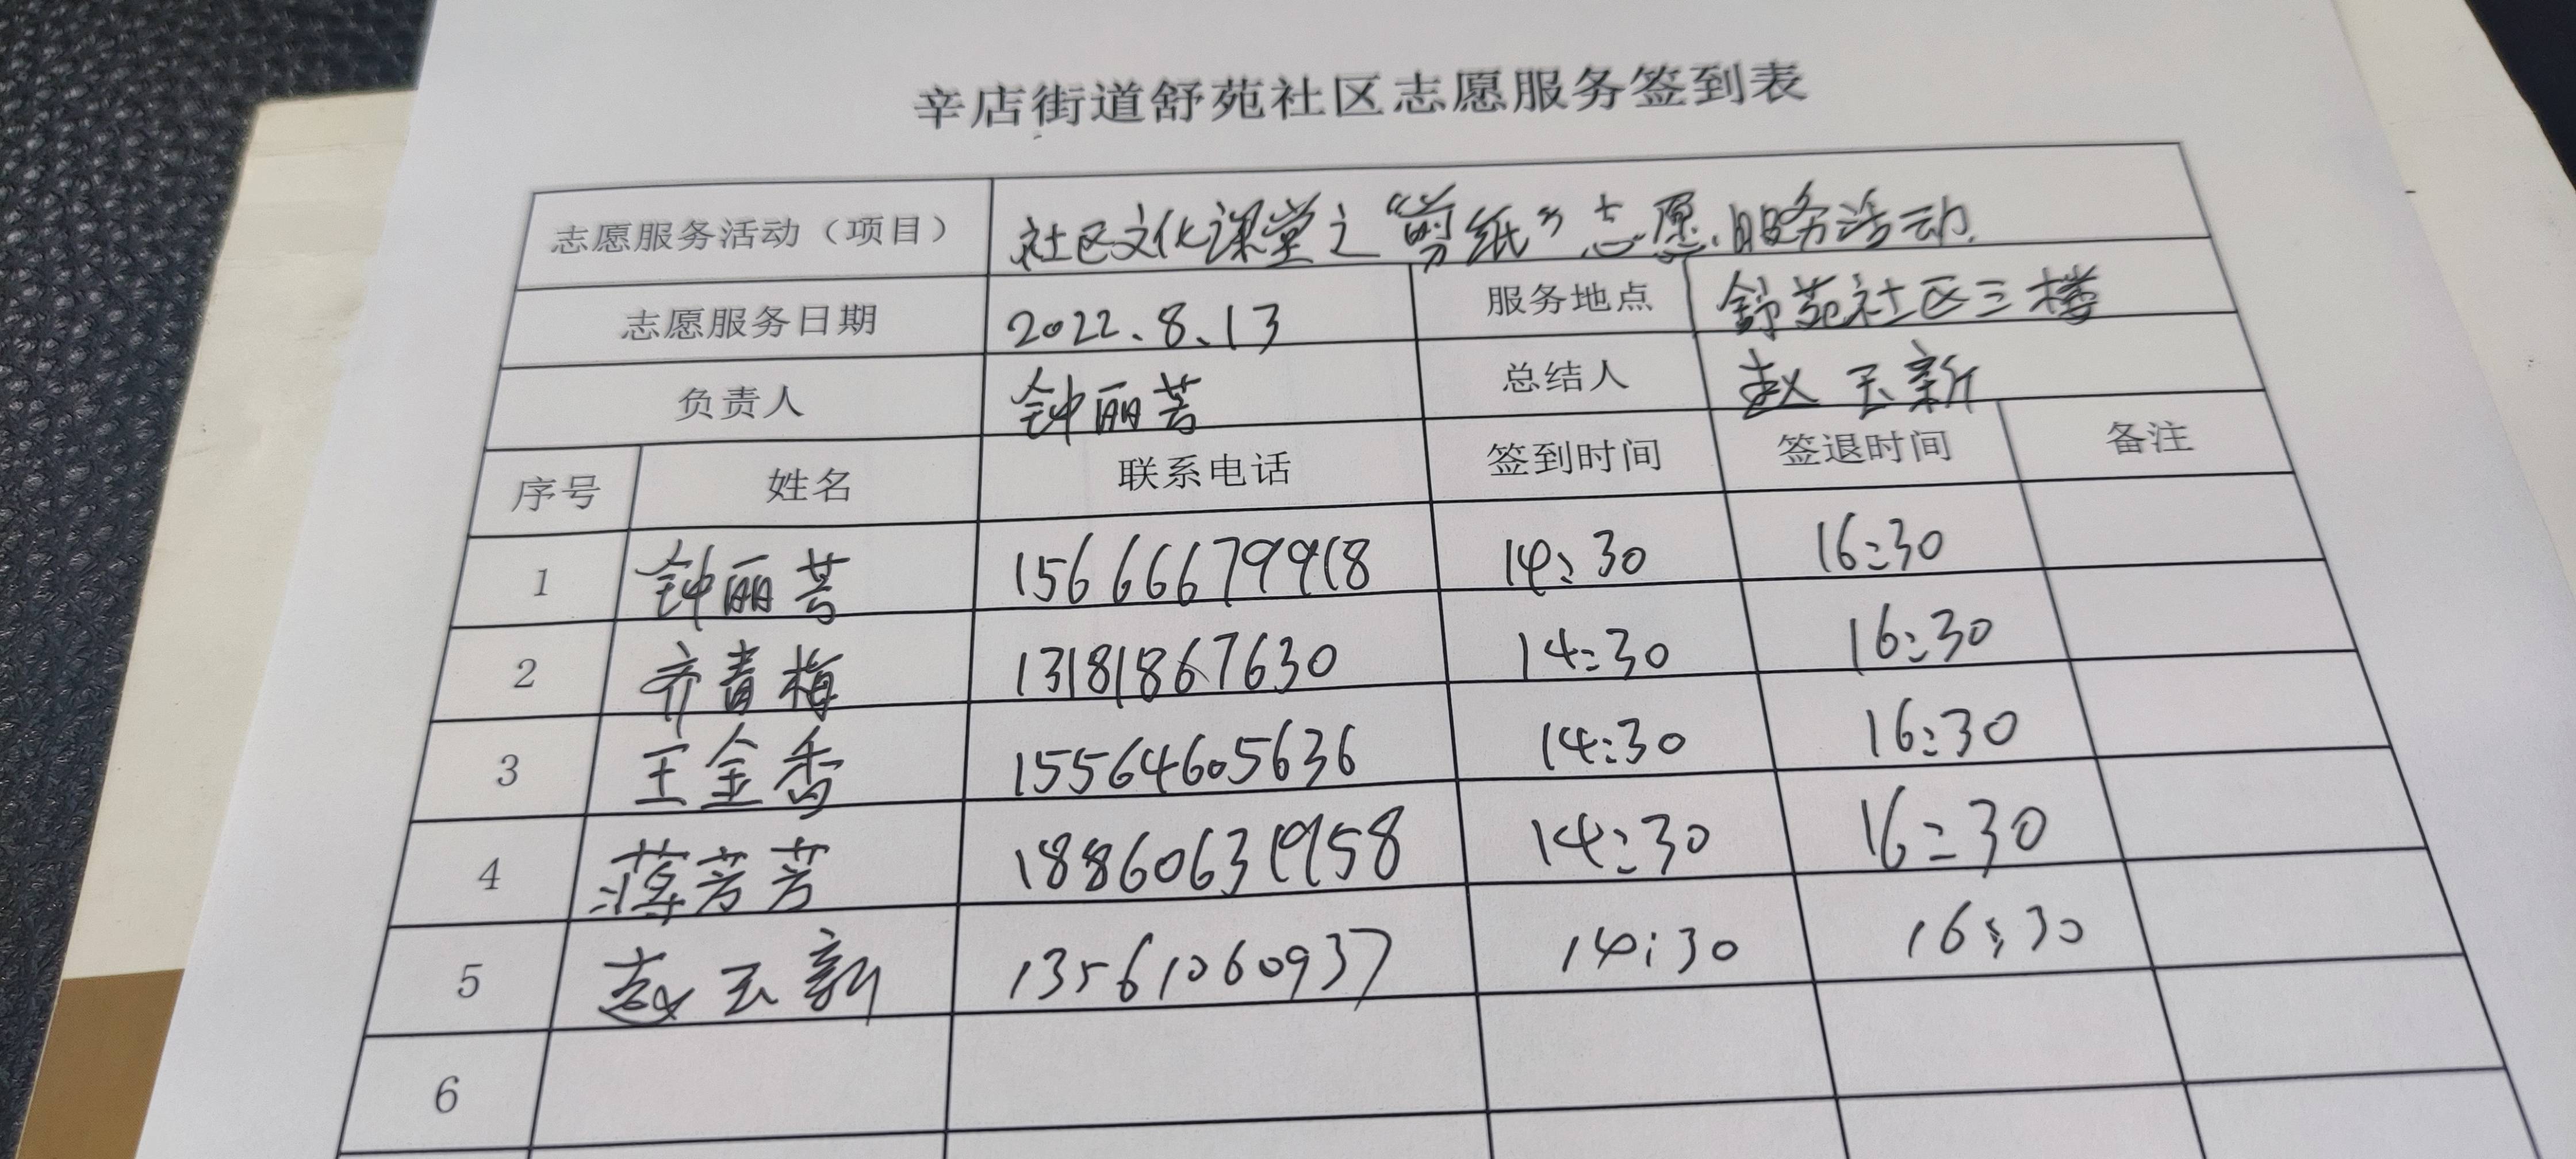 辛店街道舒苑社区志愿服务签到表
志愿服务活动（项目） 社区文化课堂之“剪纸”志愿服务活动.
志愿服务日期 2022.8.13 服务地点 舒苑社区三楼
负责人 钟丽芳 总结人 赵玉新
序号 姓名 联系电话 签到时间 签退时间 备注
1 钟丽芳 15666679918 14:30 16:30
2 齐青梅 13181867630 14:30 16:30
3 王金香 15564605636 14:30 16:30
4 蒋芳芳 18860631958 14:30 16:30
5 赵玉新 13561060937 14:30 16:30
6